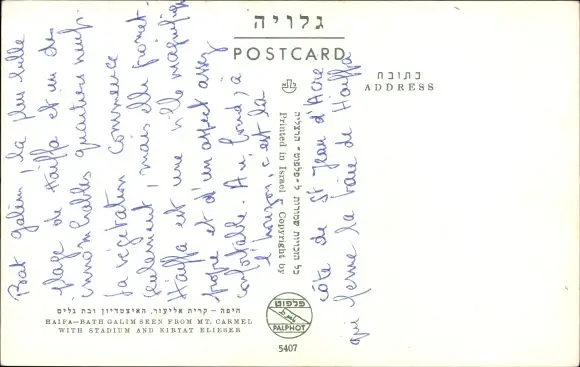 גלויה
POSTCARD
כתובת
ADDRESS
Bat galim, la plus belle
plage de Haïffa et un des
innombrables quartiers neufs.
la végétation commence
seulement, mais elle promet.
Haïffa est une ville magnifique
propre et d'un aspect assez
confortable. Au fond, à
l'horizon, c'est la
côte de St Jean d'Acre
qui ferme la baie de Haïffa
כל הזכויות שמורות ל"פלפוט" הרצליה
Printed in Israel Copyright by
פלפוט
PALPHOT
5407
חיפה - קרית אליעזר, האיצטדיון ובת גלים
HAIFA—BATH GALIM SEEN FROM MT. CARMEL
WITH STADIUM AND KIRYAT ELIESER